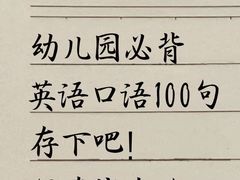 幼儿园必背
英语口语100句
存下吧!